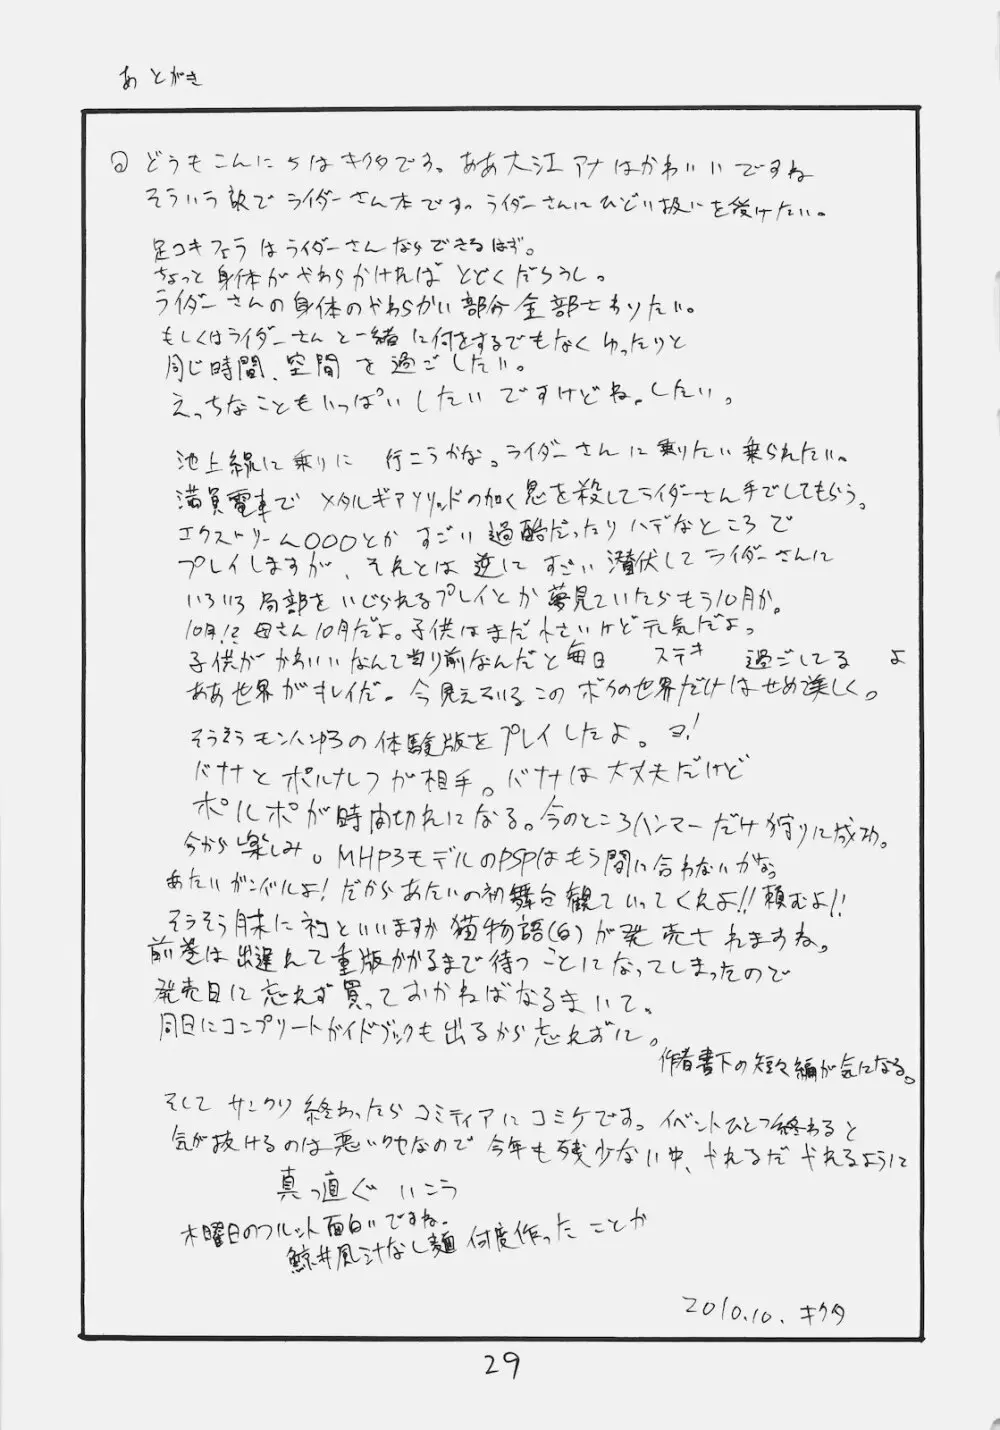 あとがき
どうもこんにちはキクタです。ああ大江アナはかわいいですね
そういう訳でライダーさん本です。ライダーさんにひどい扱いを受けたい。
足コキフェラはライダーさんならできるはず。
ちょっと身体がやわらかければとどくだろうし。
ライダーさんの身体のやわらかい部分全部さわりたい。
もしくはライダーさんと一緒に何をするでもなくゆったりと
同じ時間、空間を過ごしたい。
えっちなこともいっぱいしたいですけどね。したい。
池上線に乗りに 行こうかな。ライダーさんに乗りたい乗られたい。
満員電車でメタルギアソリッドの如く息を殺してライダーさん手でしてもらう。
エクストリーム〇〇〇とかすごい過酷だったりハデなところで
プレイしますが、それとは逆にすごい潜伏してライダーさんに
いろいろ局部をいじられるプレイとか夢見ていたらもう10月か。
10月!? 母さん10月だよ。子供はまだ小さいけど元気だよ。
子供がかわいいなんて当り前なんだと毎日 ステキ 過ごしてる よ
ああ世界がキレイだ。今見えているこのボクの世界だけはせめて美しく。
そうそうモンハンの体験版をプレイしたよ。ヨ!
バナナとポルナレフが相手。バナナは大丈夫だけど
ポルポが時間切れになる。今のところハンマーだけ狩りに成功。
今から楽しみ。MHP3モデルのPSPはもう間に合わないかな。
あたいガンバルよ! だからあたいの初舞台観ていってくれよ!!頼むよ!!
そうそう月末にネコといいますか猫物語(白)が発売されますね。
前巻は出遅れて重版かかるまで待つことになってしまったので
発売日に忘れず買っておかねばなるまいて。
同日にコンプリートガイドブックも出るから忘れずに。
作者書下の短々編が気になる。
そしてサンクリ終わったらコミティアにコミケです。イベントひとつ終わると
気が抜けるのは悪いクセなので今年も残少ない中、ダれるだダれるように
真っ直ぐいこう
木曜日のフルット面白いですね。
鯨井風汁なし麺何度作ったことか
2010.10. キクタ
29